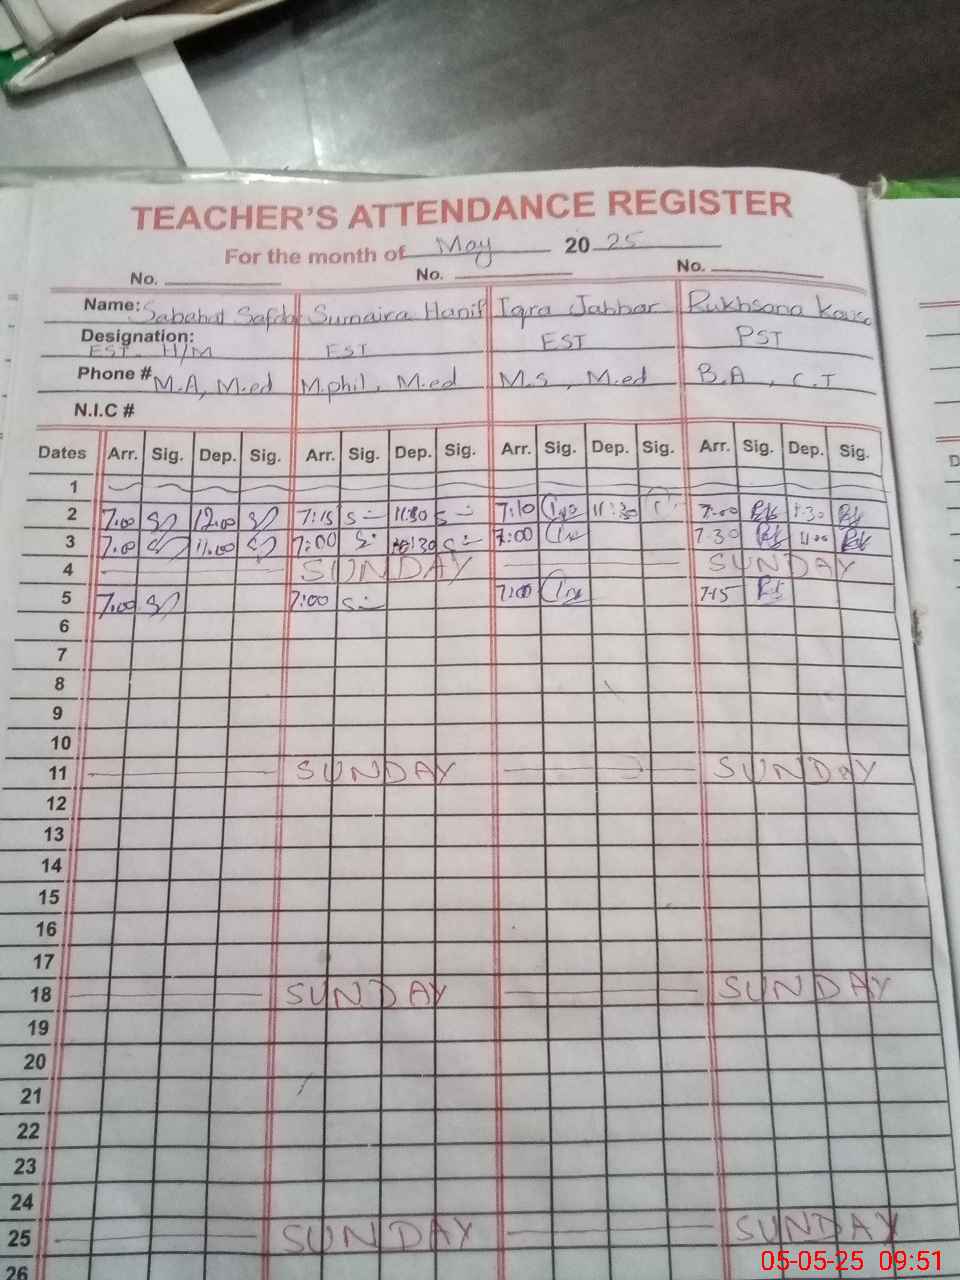 TEACHER'S ATTENDANCE REGISTER
For the month of May 2025
No. No. No.
Name: Sabahat Safdar Sumaira Hanif Iqra Jabbar Rukhsana
Designation:
EST. H/M EST EST PST
Phone # M.A, M.ed M.phil, M.ed M.S, M.ed B.A, C.T
N.I.C #
Dates Arr. Sig. Dep. Sig. Arr. Sig. Dep. Sig. Arr. Sig. Dep. Sig. Arr. Sig. Dep. Sig.
1
2 7.00 12.00 7:15 11:30 7:10 11:30
3 7.00 11.00 7:00 7:00 7.30 11.00
4 SUNDAY SUNDAY
5 7.00 7:00 7:00 7.15
6
7
8
9
10
11 SUNDAY SUNDAY
12
13
14
15
16
17
18 SUNDAY SUNDAY
19
20
21
22
23
24
25 SUNDAY SUNDAY
26
05-05-25 09:51